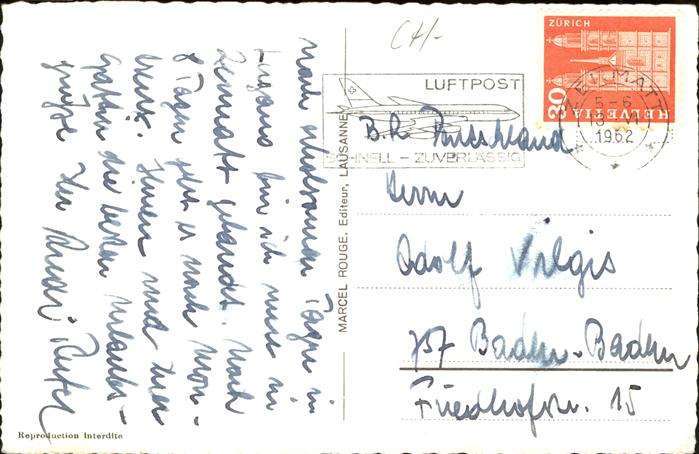 nach erholsamen Tagen in
Lugano bin ich nun in
Zermatt gelandet. Nach
8 Tagen geht es nach Mon-
treux. Ihnen und Ihrer
Gattin die besten Urlaubs-
grüße Ihr
CH/-
LUFTPOST
SCHNELL – ZUVERLÄSSIG
ZÜRICH
30
HELVETIA
ZERMATT
5-6
1962
MARCEL ROUGE, Editeur, LAUSANNE
B.R. Deutschland
Herrn
Adolf Vilgis
757 Baden-Baden
Friedhofstr. 15
Reproduction interdite